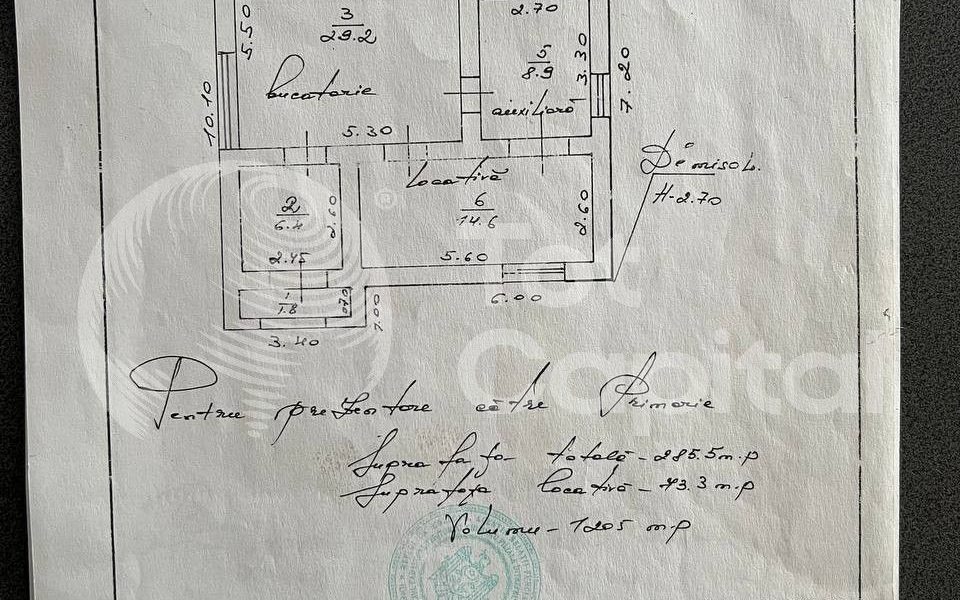 3
29.2
5.50
2.70
5
8.9
3.30
7.20
bucatarie
auxiliară
10.10
5.30
Demisol.
H-2.70
locativă
6
14.6
2.60
2
6.4
2.60
2.45
5.60
6.00
1
1.8
0.70
7.00
3.40
Tot
Capital
Pentru prezentare către Primarie
Suprafața totală - 285.5 m.p
Suprafața locativă - 73.3 m.p
Volumu - 1205 m p